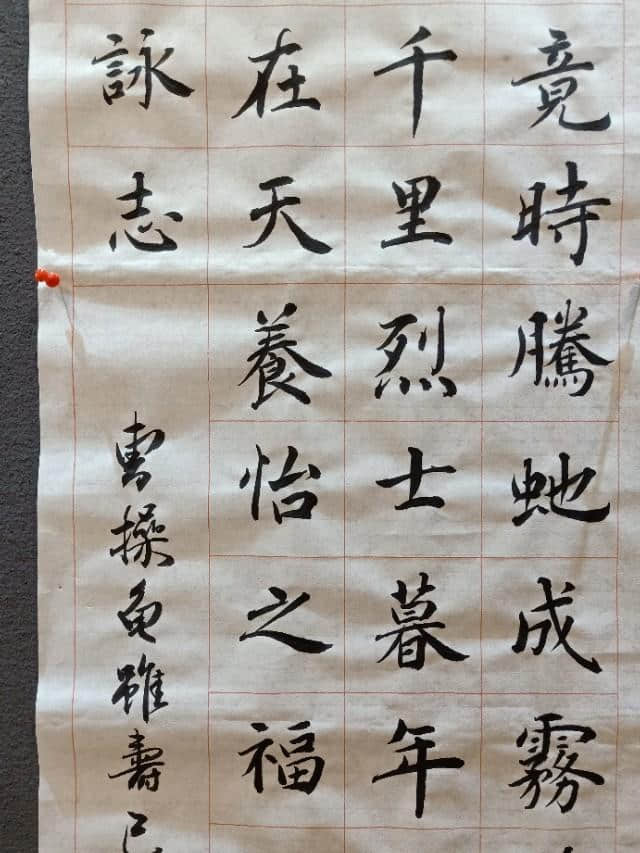 竟時騰虵成霧
千里烈士暮年
在天養怡之福
詠志
曹操龜雖壽己